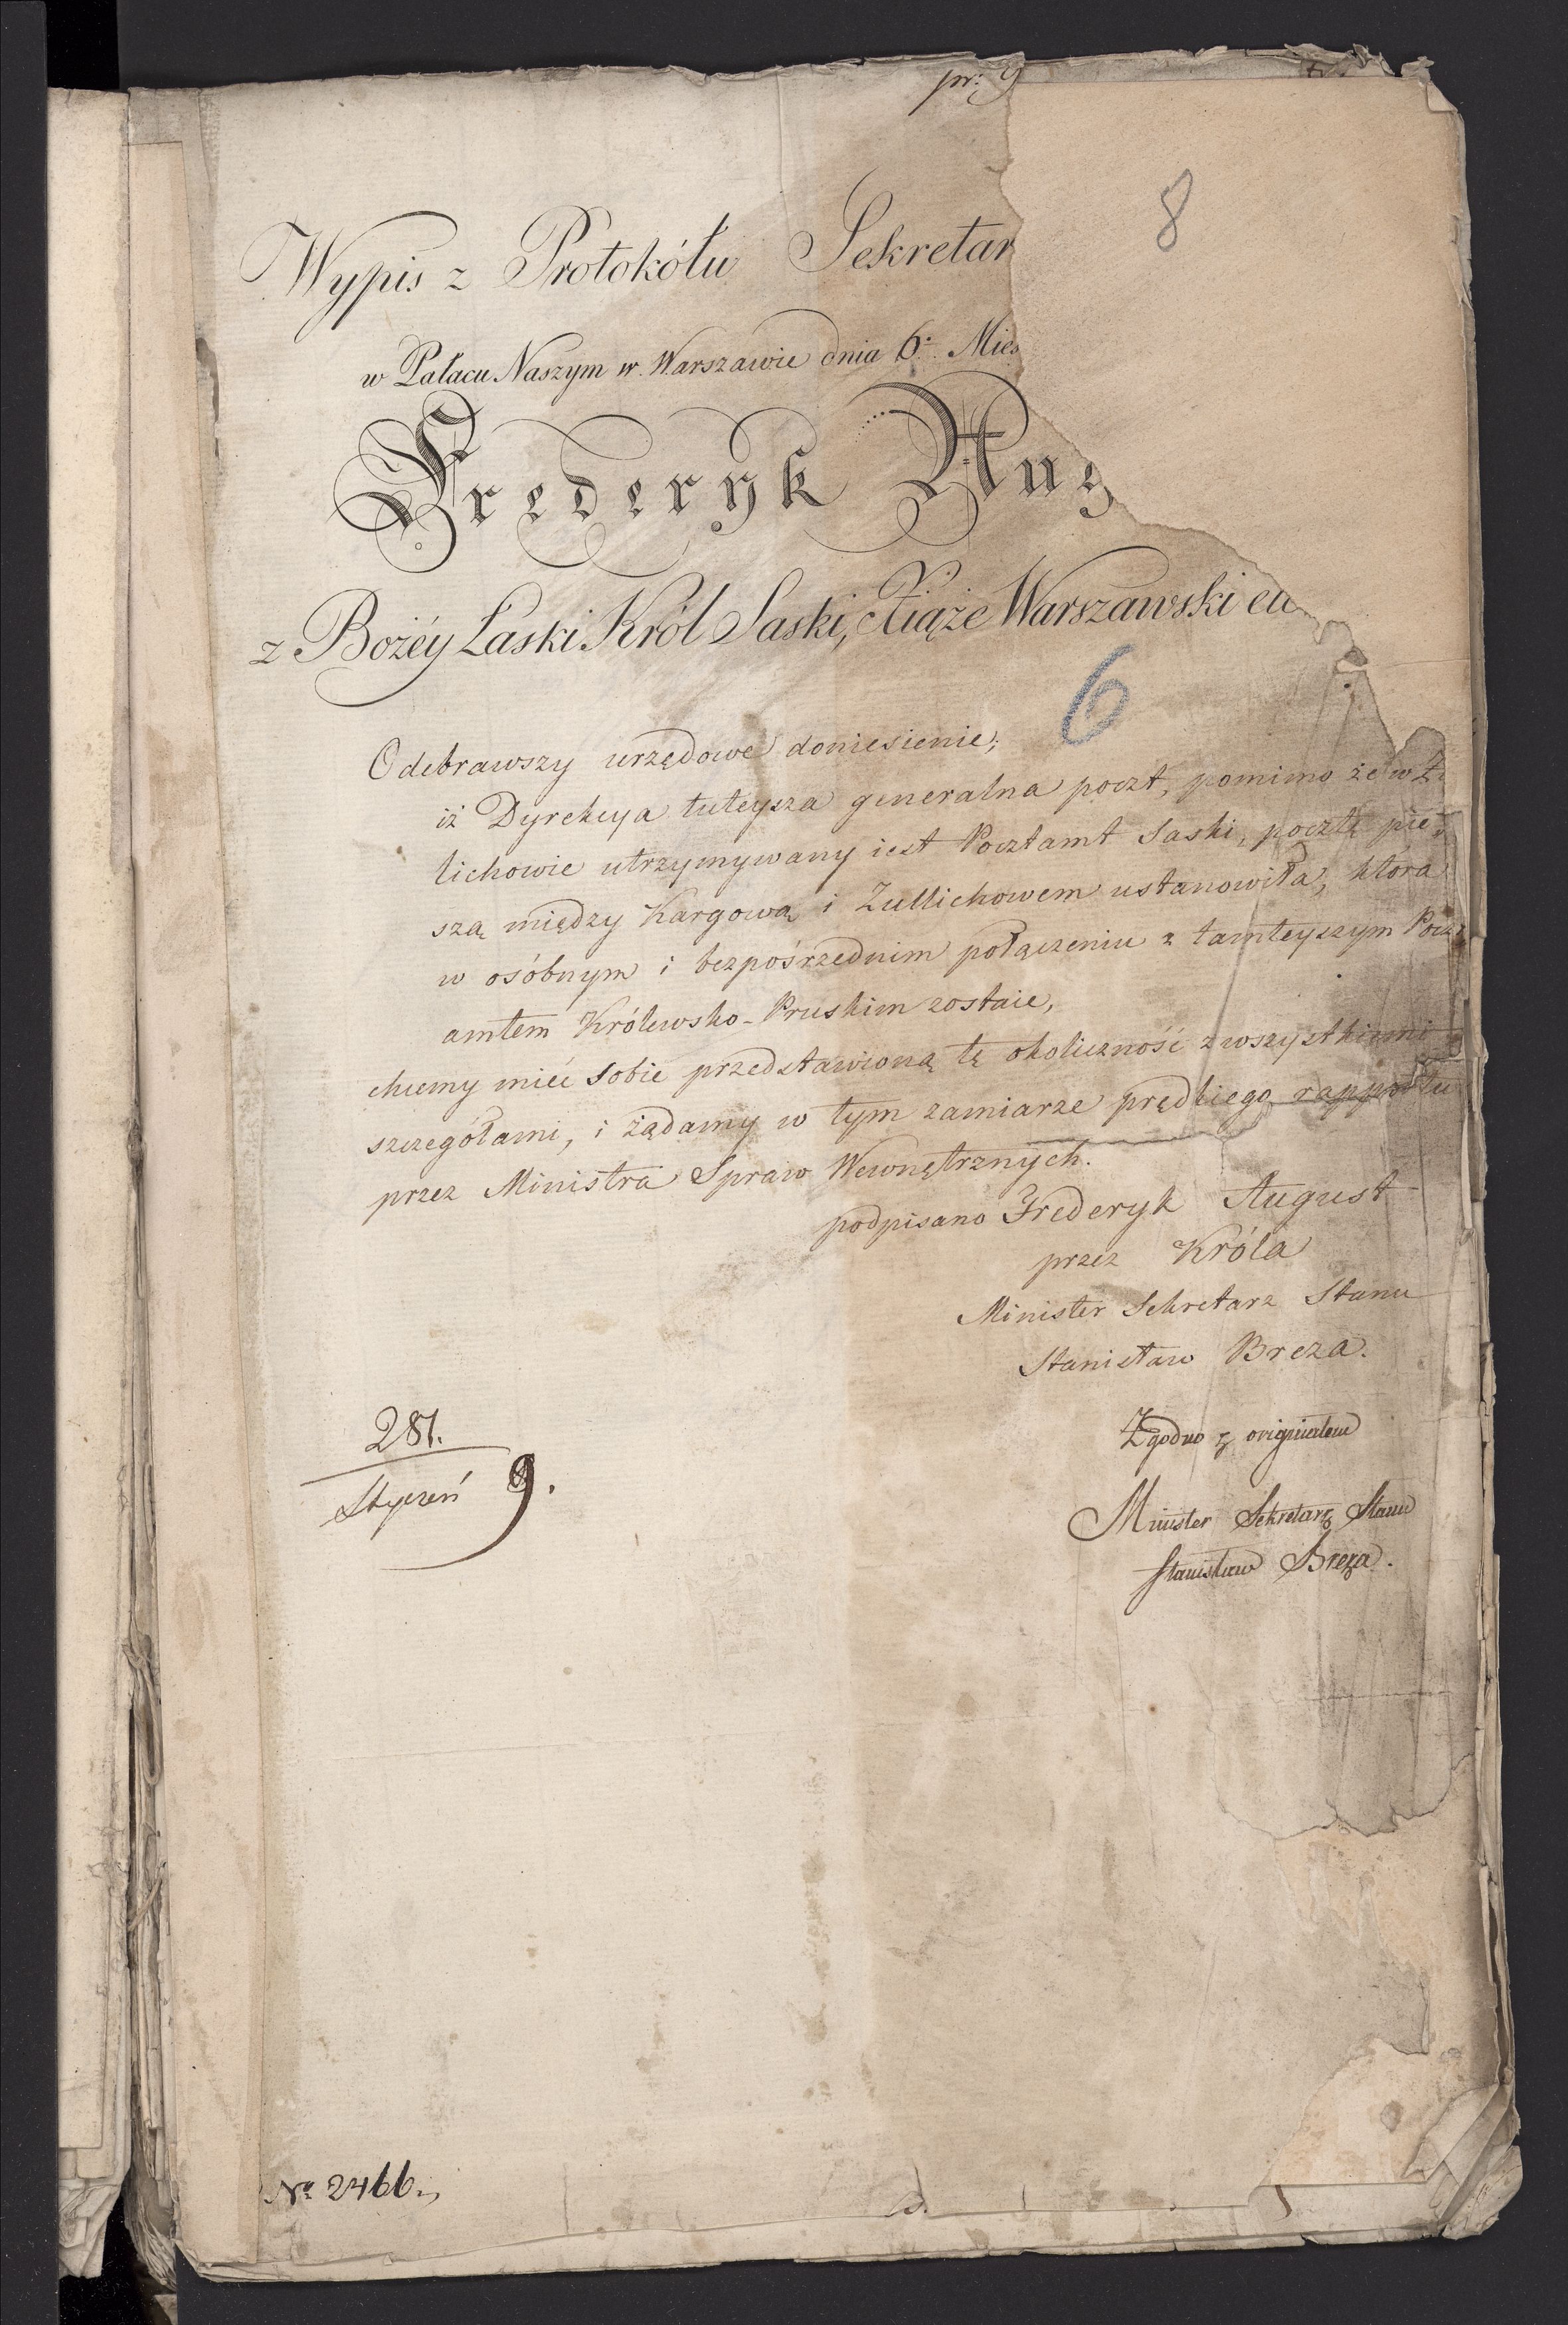 pr: 9
8
Wypis z Protokółu Sekretar
w Pałacu Naszym w Warszawie dnia 6. Mies
Fryderyk Aug
z Bożéy Łaski Król Saski, Xiąże Warszawski
6
Odebrawszy urzędowe doniesienie;
iż Dyrekcya tuteysza generalna poczt, pomimo że w
lichowie utrzymywany iest Pocztamt Saski, pocztę pie
szą między Kargową i Zullichowem ustanowiła, która
w osóbnym i bezpośrzednim połączeniu z tamteyszym Pocz
amtem Królewsko-Pruskim zostaie,
chcemy mieć sobie przedstawioną tę okoliczność z wszystkiemi
szczegółami, i żądamy w tym zamiarze prędkiego rapportu
przez Ministra Spraw Wewnętrznych.
podpisano Frederyk August
przez Króla
Minister Sekretarz Stanu
Stanisław Breza.
Zgodno z originałem
Minister Sekretarz Stanu
Stanisław Breza.
281.
Styczeń 9.
No 2466.